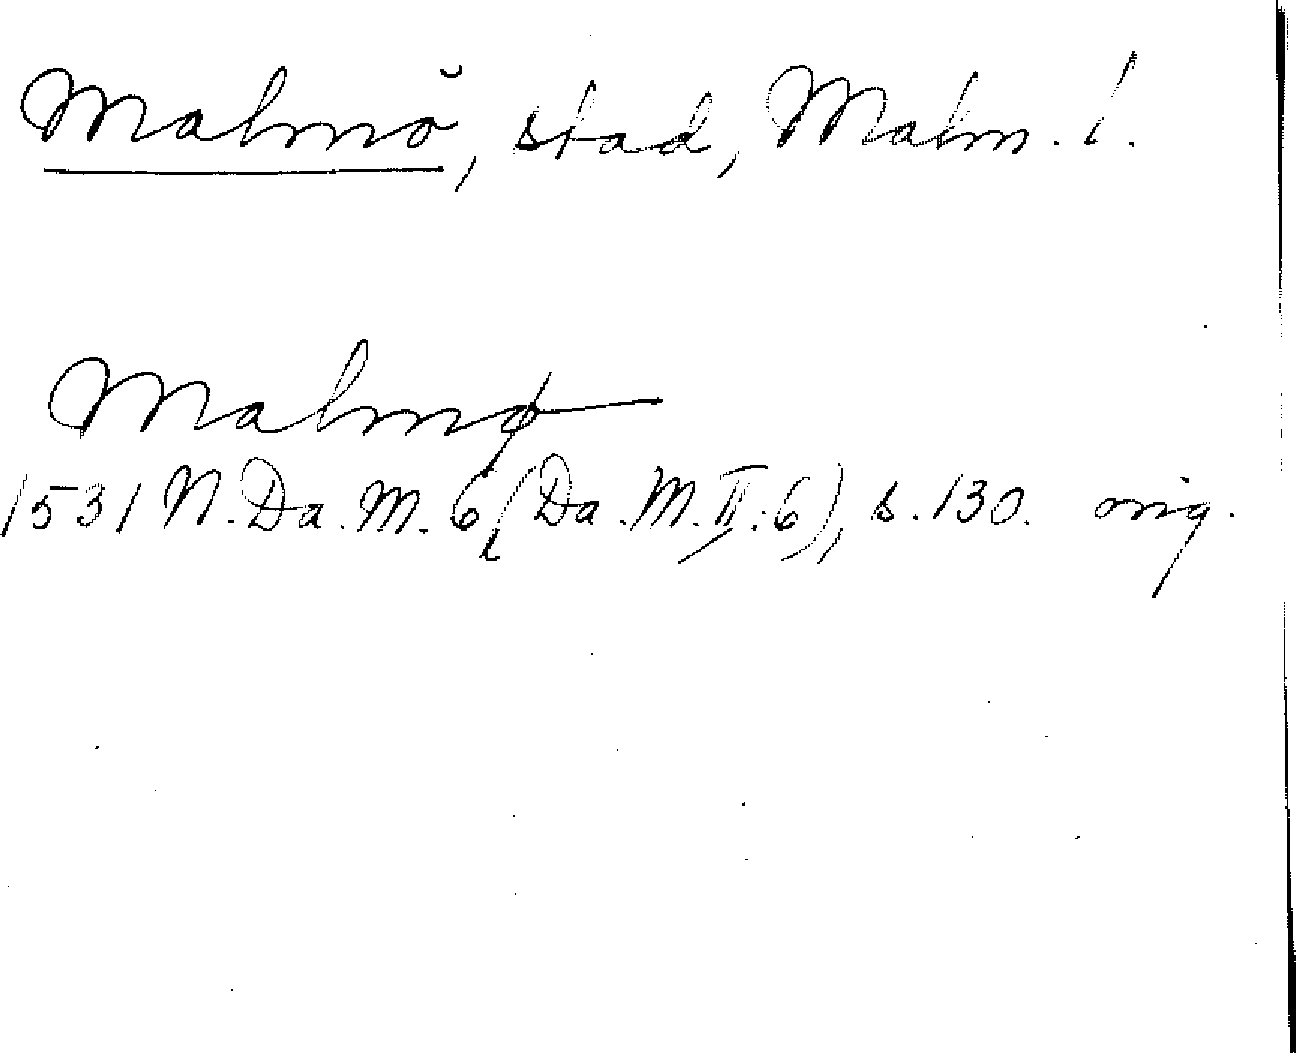 Malmö, stad, Malm. l.
Malmø
1531 N. Da. M. 6 (Da. M. II: 6), s. 130. orig.